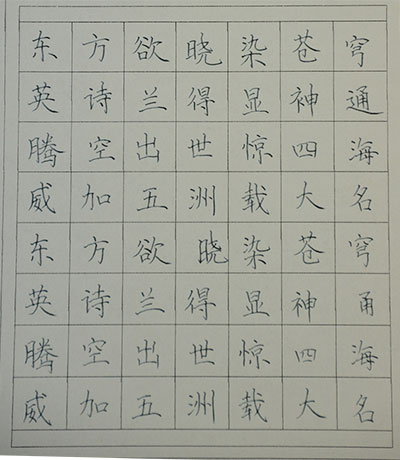 东方欲晓染苍穹
英诗兰得显神通
腾空出世惊四海
威加五洲载大名
东方欲晓染苍穹
英诗兰得显神甬
腾空出世惊四海
威加五洲载大名